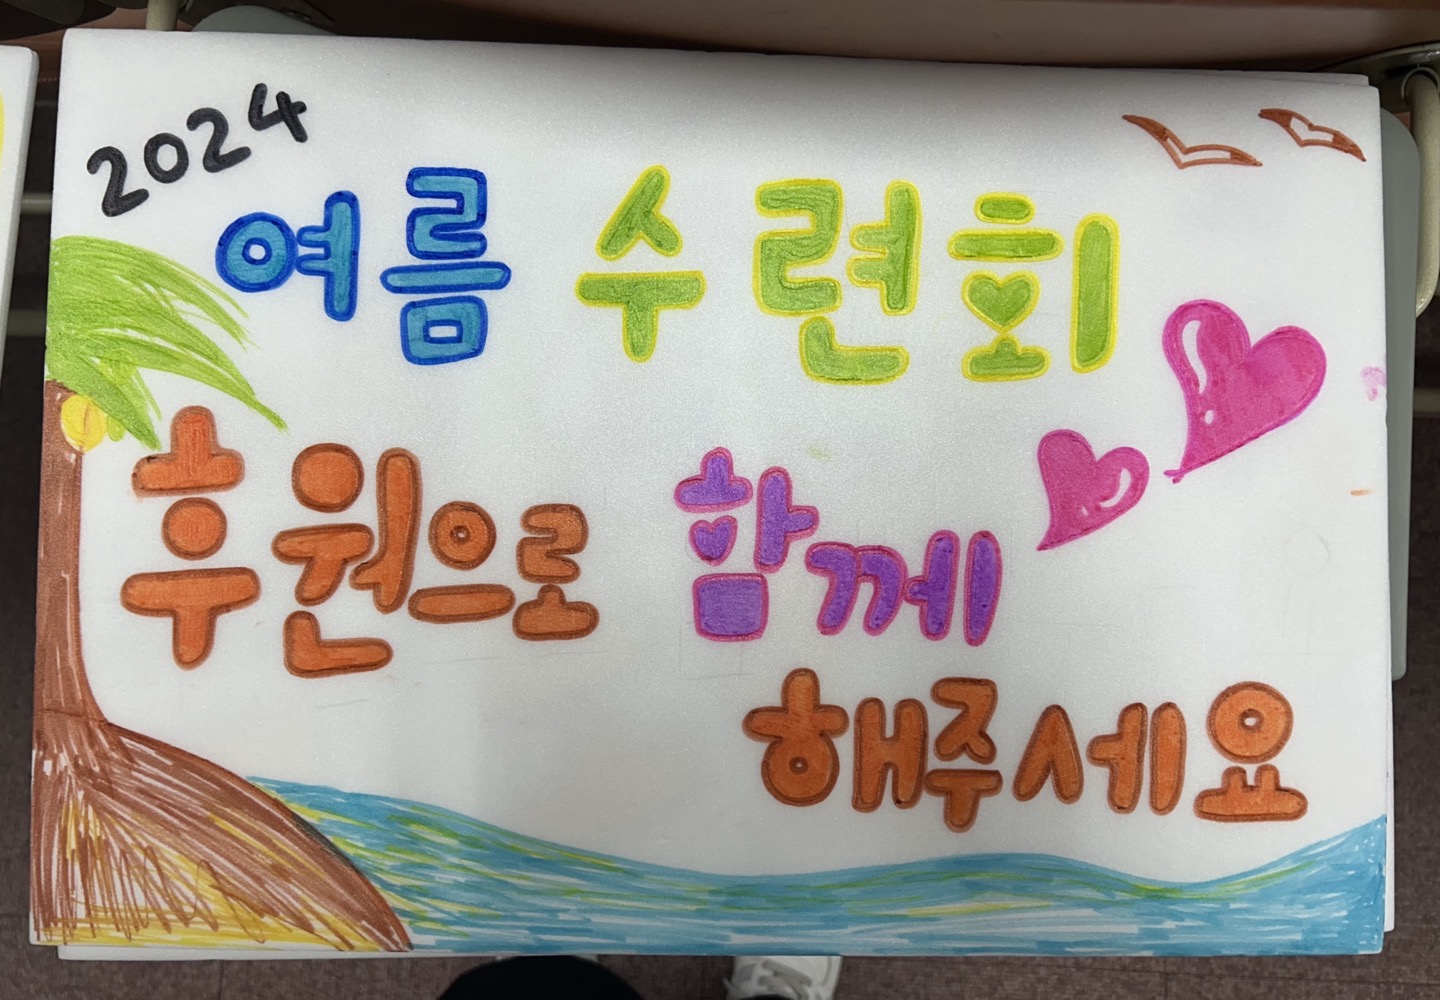 2024
여름 수련회
후원으로 함께
해주세요